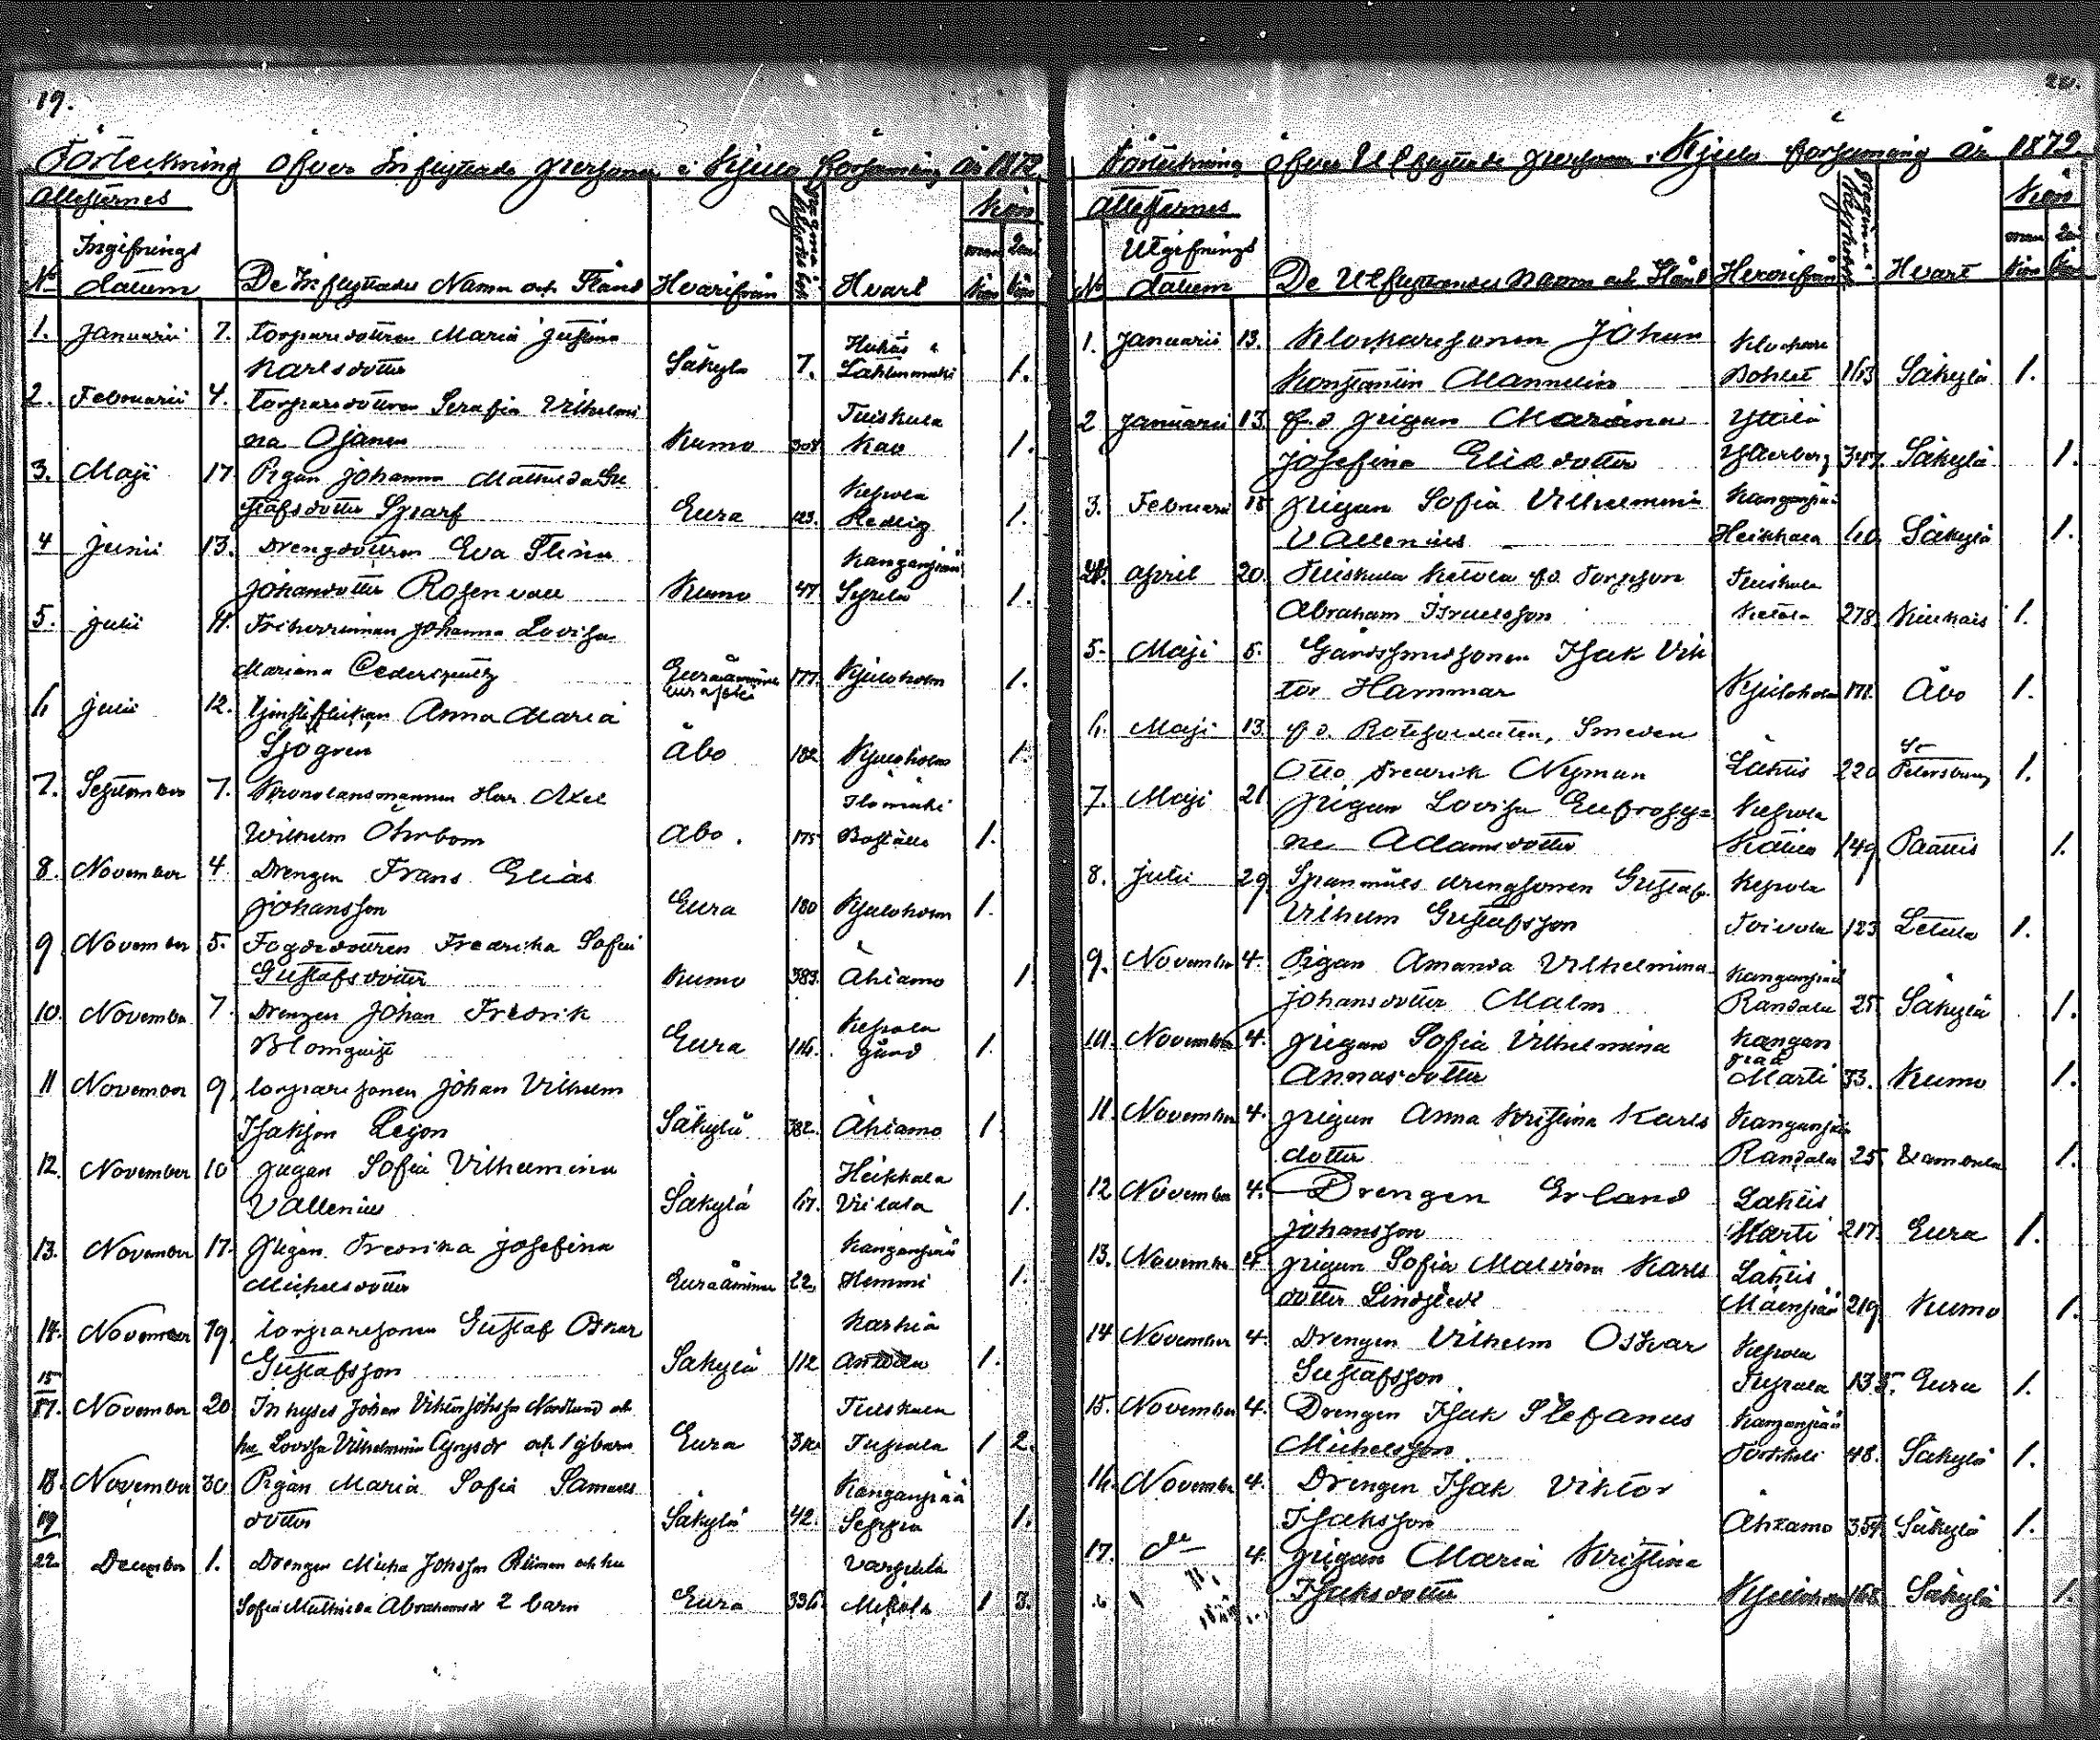 19.
Förteckning öfver Inflyttade personer i Kjulo församling år 1872
attesternes
Kön
Ingifnings
man
No datum De Inflyttades Namn och Stånd Hvarifrån Hvart kön kön
1. Januarii 7. Torparedottren Maria Justina
Karlsdotter Säkylä 7. Lahtenmäki 1.
2. Februarii 4. Torparedottren Serafia Vilhelmi Tuiskula
na Ojanen Kumo 308 Kao 1.
3. Maji 17 Pigan Johanna Mathilda Gu Kepola
stafsdotter Sparf Eura 123. Hedvig 1.
4 Junii 13. Drengdottren Eva Stina Kanganpää
Johansdotter Rosenvall Kumo 47 Syrelä 1.
5. Julii 11. Friherrinnan Johanna Lovisa
Mariana Cedercreutz Euraåminne Eurajoki 177. Kjuloholm 1.
6 Julii 12. tjenstflickan Anna Maria
Sjögren Åbo 182 Kjuloholm 1.
7. September 7. Kronolänsmannen Herr Axel Ilomäki
Wilhelm Öhrbom Åbo. 175 Boställe 1.
8. November 4. Drengen Frans Elias
Johansson Eura 180 Kjuloholm 1.
9 November 5. Fogdedottren Fredrika Sofia
Gustafsdotter Kumo 383. Ähiamo 1
10. November 7. Drengen Johan Fredrik Kepola
Blomquist Eura 116. 1.
11 November 9, torparesonen Johan Vilhelm
Isaksson Legon Säkylä 382. Ähiamo 1
12. November 10 pigan Sofia Vilhelmina Heikkala
Vallenius Säkylä 67. Vulata 1.
13. November 17. Pigan Fredrika Josefina Kanganpää
Michelsdotter Euraåminne 22, Hemmi 1.
14. November 19. torparesonen Gustaf Oskar Karhia
Gustafsson Säkylä 112 Anttila 1.
15
17. November 20 Inhyses Johan Vihtor Johsson Nordlund och Tuiskula
hu Lovisa Vilhelmina och 1 barn Eura Tupala 1 2.
18. November 30 Pigan Maria Sofia Samuels Kanganpää
dotter Säkylä 42. Seppä 1.
19
22 December 1. Drengen Micha Johsson och hu Vargula
Sofia Mathilda Abrahamsdr 2 barn Eura 336. Mikola 1 3.
20.
Förteckning öfver Utflyttade personer i Kjulo församling år 1872
Attesternes
Kön
Utgifnings
man
No datum De Utflyttandes Namn och Stånd Hvarifrån Hvart kön kön
1. Januarii 13. Klockaresonen Johan Klockare
Konstantin Mannelin Bohlet 163 Säkylä 1.
2 Januarii 13. f.d. pigan Mariana Yttilä
Josefina Eliedotter 347. Säkylä 1.
3. Februarii 15 pigan Sofia Vilhelmina Kanganpää
Vallenius Heikkala 60 Säkylä 1.
4. April 20. Tuiskula Ketola f.d. Torpson Tuiskula
Abraham Israelsson Ketola 278 Kiukais 1.
5. Maji 5. Gårdssmedsonen Isak Vik
tor Hammar Kjuloholm 178. Åbo 1.
6. Maji 13. f.d. Rotesoldaten, Smeden St
Otto Fredrik Nyman Lähtis 220 Petersburg 1.
7. Maji 21 pigan Lovisa Eufrosy= Kepola
ne Adamsdotter Kätteö 149, Paattis 1.
8. Julii 29. Spannmåls drengsonen Gustaf Kepola
Vilhelm Gustafsson Toivola 123 Letala 1.
9. November 4. Pigan Amanda Vilhelmina Kanganpää
Johansdotter Malm Randala 25. Säkylä 1.
10. November 4. pigan Sofia Vilhelmina Kangan
pää
Annasdotter Marti 33. Kumo 1.
11. November 4. pigan Anna Kristina Karls Kanganpää
dotter Randala 25. Vambula 1.
12 November 4. Drengen Erland Lähtis
Johansson Marti 217. Eura 1.
13. November 4 pigan Sofia Malviina Karls Lähtis
dotter Lindstedt Mäenpää 219. Kumo 1.
14 November 4. Drengen Vilhelm Oskar Kepola
Gustafsson Tupala 135. Eura 1.
15. November 4. Drengen Isak Stefanus Kanganpää
Michelsson Torkkeli 48. Säkylä 1.
16. November 4. Drengen Isak Viktor
Isaksson Ähiamo 354 Säkylä 1.
17. do 4. pigan Maria Kristina
Isaksdotter Kjuloholm 168. Säkylä 1.